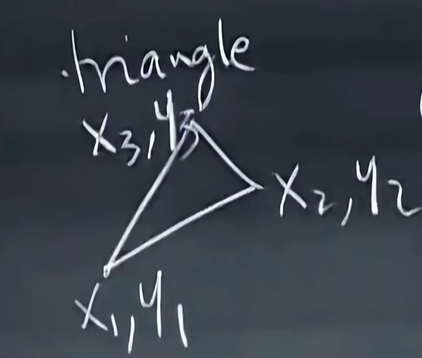 triangle
x₃, y₃
x₂, y₂
x₁, y₁